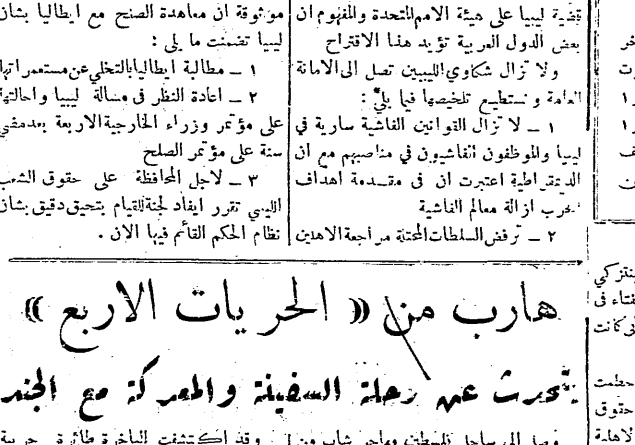 قضية ليبيا على هيئة الامم المتحدة والمفهوم ان
بعض الدول العربية تؤيد هذا الاقتراح
ولا تزال شكاوي الليبيين تصل الى الامانة
العامة ونستطيع تلخيصها فيما يلي :
١ ــ لا تزال القوانين الفاشية سارية في
ليبيا والموظفون الفاشيون في مناصبهم مع ان
الديمقراطية اعتبرت ان في مقدمة اهداف
الحرب ازالة معالم الفاشية
٢ ــ ترفض السلطات المحتلة مراجعة الاهلين
موثوقة ان معاهدة الصلح مع ايطاليا بشأن
ليبيا تضمنت ما يلي :
١ ــ مطالبة ايطاليا بالتخلي عن مستعمراتها
٢ ــ اعادة النظر في مسألة ليبيا واحالتها
على مؤتمر وزراء الخارجية الاربعة بعد مضي
سنة على مؤتمر الصلح
٣ ــ لاجل المحافظة على حقوق الشعب
الليبي تقرر ايفاد لجنة للقيام بتحقيق دقيق بشأن
نظام الحكم القائم فيها الان .
هارب من « الحريات الاربع »
يتحدث عن رحلة السفينة والمعركة مع الجند
وصل الى ساحل فلسطين مهاجر شاب من
وقد اكتشفت الباخرة طائرة حربية
كانت
حطمت
حقوق